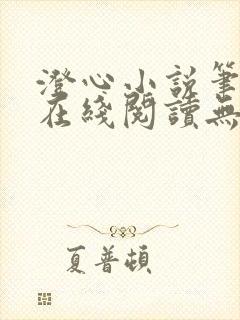 澄心小説筆
在綫閱讀無
夏普頓